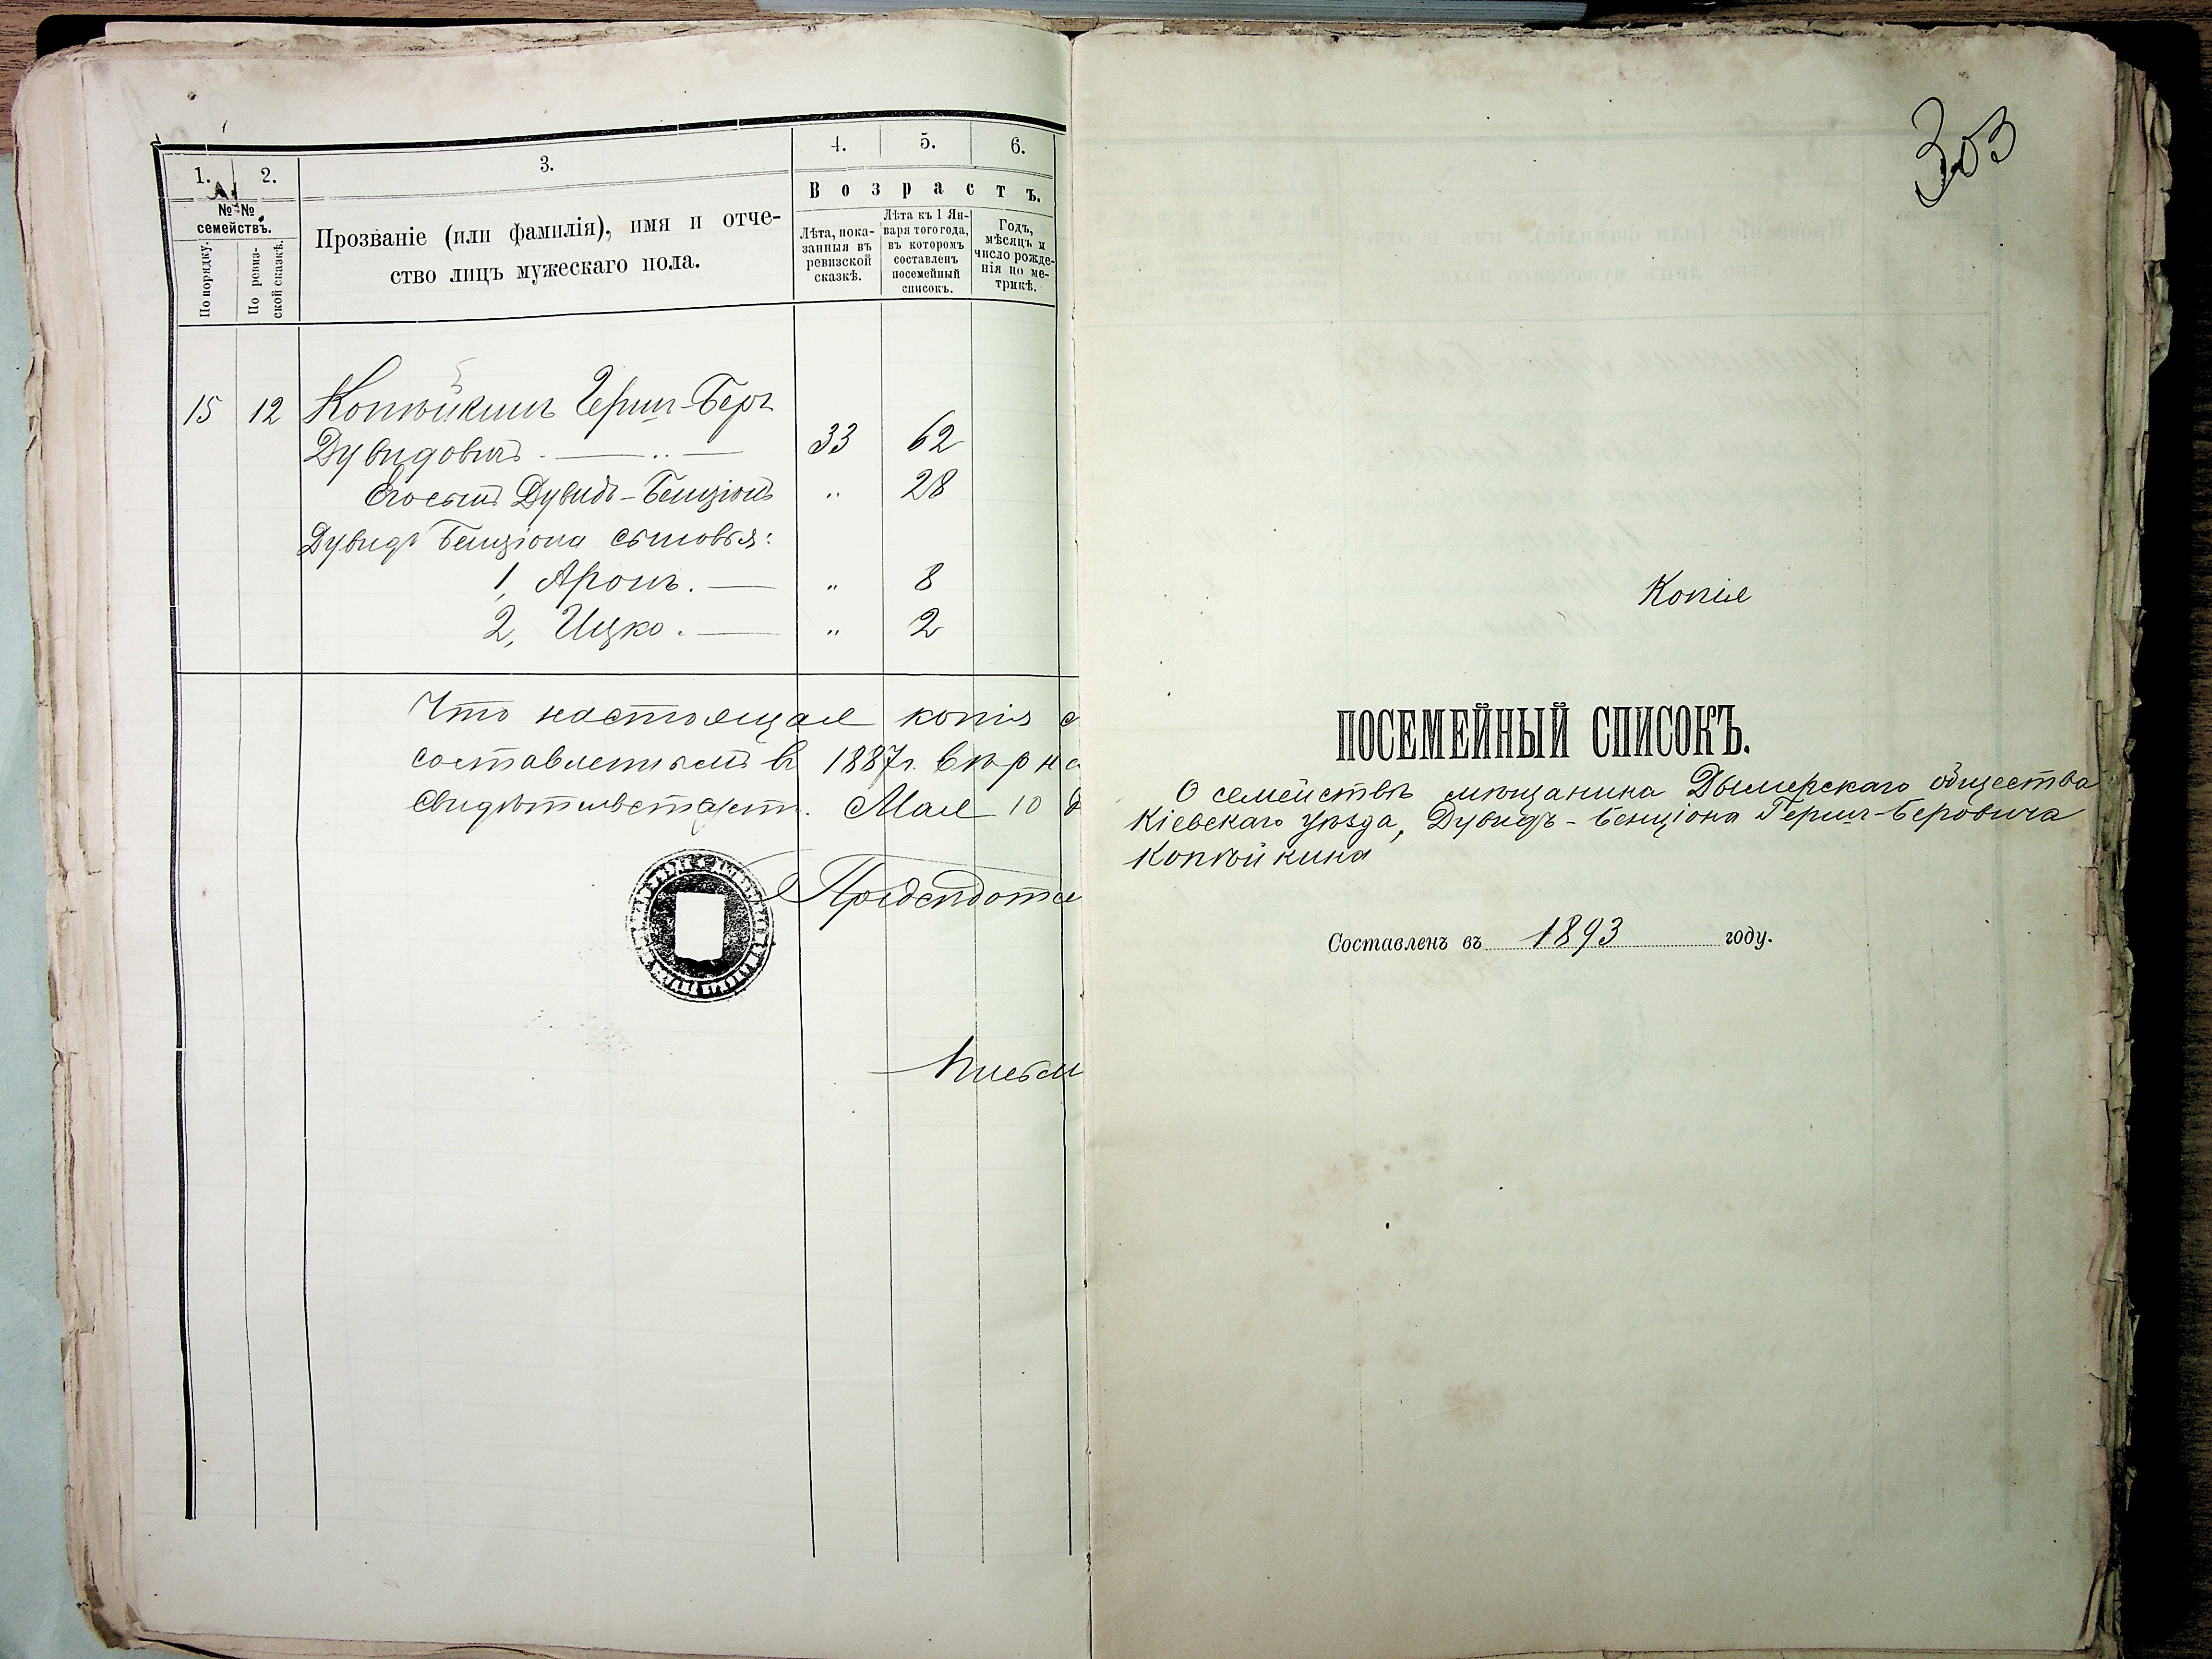 1. 2. 3. 4. 5. 6.
Возрастъ.
№ № семействъ.
По порядку.
По ревиз-
ской сказкѣ.
Прозваніе (или фамилія), имя и отче-
ство лицъ мужескаго пола.
Лѣта, пока-
занныя въ
ревизской
сказкѣ.
Лѣта къ 1 Ян-
варя того года,
въ которомъ
составленъ
посемейный
списокъ.
Годъ,
мѣсяцъ и
число рожде-
нія по ме-
трикѣ.
15 12 Копѣйкинъ Герш-Беръ
Дувидовичъ . — .. — 33 62
Его сынъ Дувидъ-Бенціонъ „ 28
Дувидъ Бенціона сыновья:
1, Аронъ. — „ 8
2, Ицко. — „ 2
Что настоящая копія с
составленнымъ въ 1887 г. вѣрна
свидѣтельствуетъ. Мая 10 д
Предсѣдате
Письм
303
Копія
ПОСЕМЕЙНЫЙ СПИСОКЪ.
О семействѣ мѣщанина Дымерскаго общества
Кіевскаго уѣзда, Дувидъ-Бенціона Герш-Беровича
Копѣйкина
Составленъ въ 1893 году.